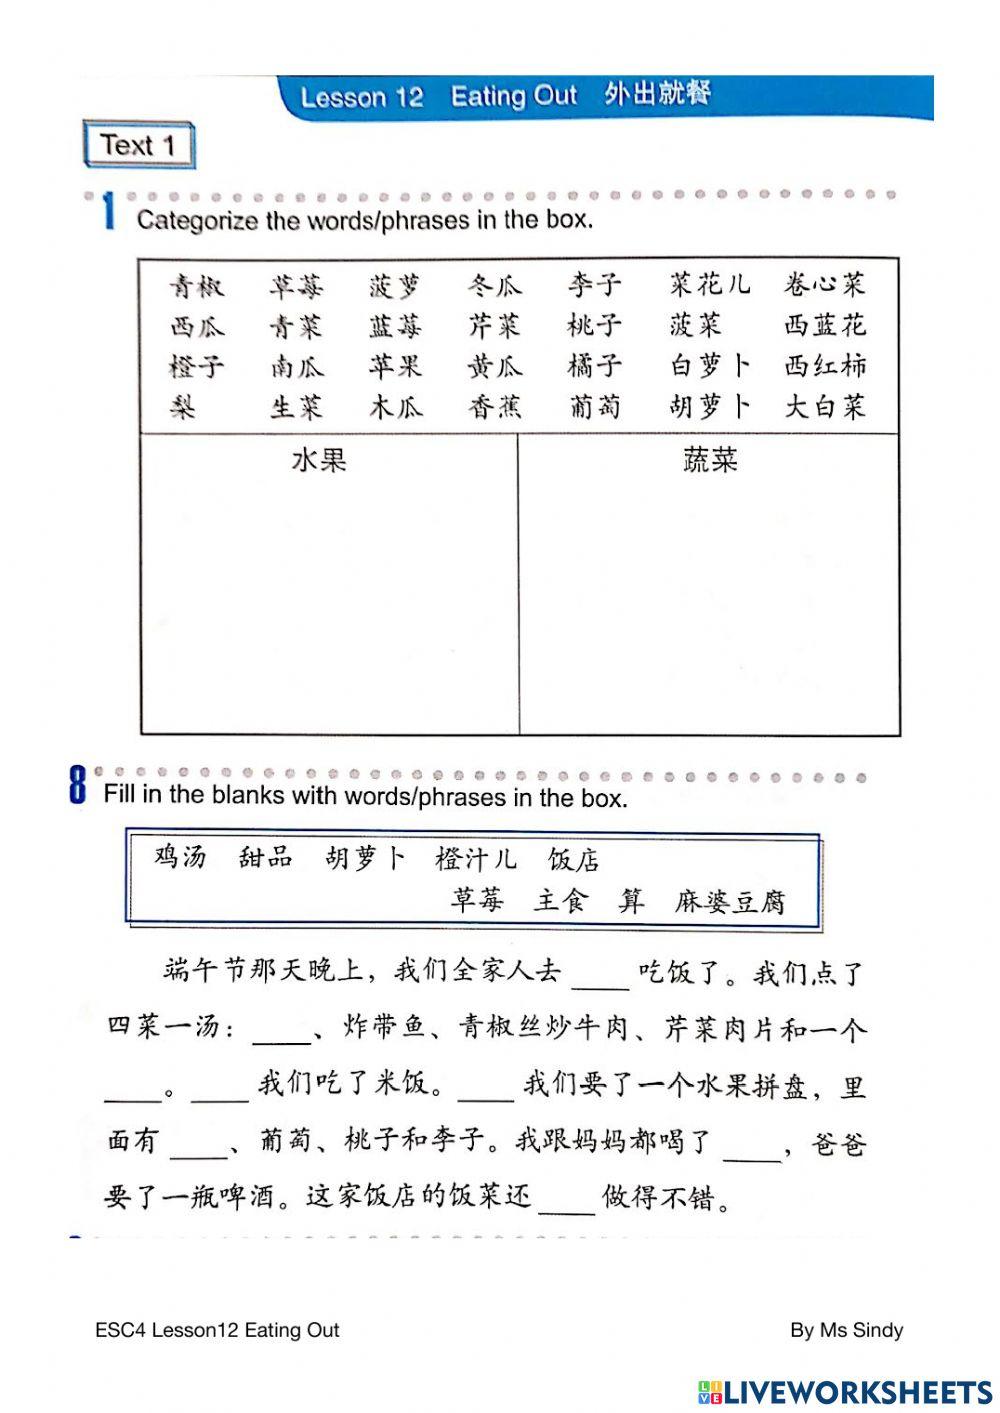 Lesson 12 Eating Out 外出就餐
Text 1
1 Categorize the words/phrases in the box.
青椒 草莓 菠萝 冬瓜 李子 菜花儿 卷心菜
西瓜 青菜 蓝莓 芹菜 桃子 菠菜 西蓝花
橙子 南瓜 苹果 黄瓜 橘子 白萝卜 西红柿
梨 生菜 木瓜 香蕉 葡萄 胡萝卜 大白菜
水果 蔬菜
8 Fill in the blanks with words/phrases in the box.
鸡汤 甜品 胡萝卜 橙汁儿 饭店
草莓 主食 算 麻婆豆腐
端午节那天晚上，我们全家人去 ____ 吃饭了。我们点了
四菜一汤：____、炸带鱼、青椒丝炒牛肉、芹菜肉片和一个
____。____ 我们吃了米饭。____ 我们要了一个水果拼盘，里
面有 ____、葡萄、桃子和李子。我跟妈妈都喝了 ____，爸爸
要了一瓶啤酒。这家饭店的饭菜还 ____ 做得不错。
ESC4 Lesson12 Eating Out By Ms Sindy
LIVE LIVEWORKSHEETS